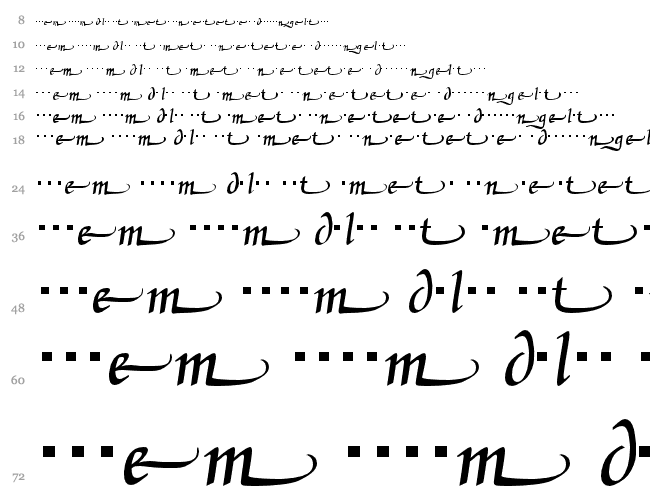 8 ···em ····m d·l·· ··t ·met· ··n·e·tet·e· ·d······ng el·t·
10 ···em ····m d·l·· ··t ·met· ··n·e·tet·e· ·d······ng el·t·
12 ···em ····m d·l·· ··t ·met· ··n·e·tet·e· ·d······ng el·t·
14 ···em ····m d·l·· ··t ·met· ··n·e·tet·e· ·d······ng el·t·
16 ···em ····m d·l·· ··t ·met· ··n·e·tet·e· ·d······ng el·t·
18 ···em ····m d·l·· ··t ·met· ··n·e·tet·e· ·d······ng el
24 ···em ····m d·l·· ··t ·met· ··n·e·tet
36 ···em ····m d·l·· ··t ·met·
48 ···em ····m d·l·· ··t ·
60 ···em ····m d·l·· ·
72 ···em ····m d·